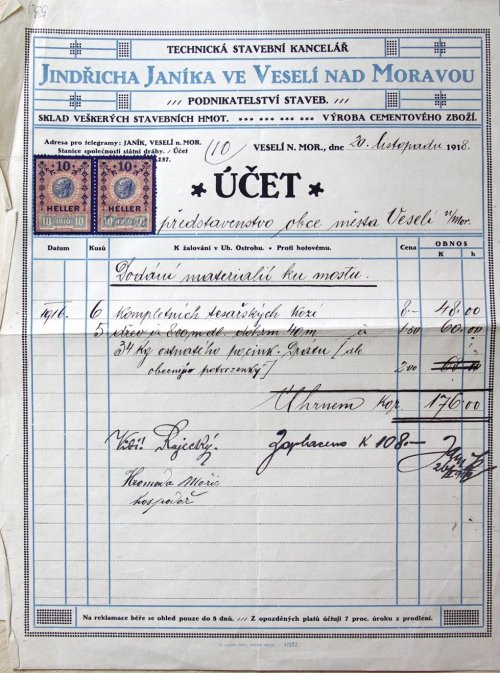 TECHNICKÁ STAVEBNÍ KANCELÁŘ
JINDŘICHA JANÍKA VE VESELÍ NAD MORAVOU
PODNIKATELSTVÍ STAVEB.
SKLAD VEŠKERÝCH STAVEBNÍCH HMOT. VÝROBA CEMENTOVÉHO ZBOŽÍ.
Adresa pro telegramy: JANÍK, VESELÍ n. MOR.
Stanice společnosti státní dráhy. / Účet
(10) VESELÍ N. MOR., dne 20. listopadu 1918.
10 10
HELLER HELLER
10 1910 10 10 1910 10
* ÚČET *
představenstvo obce města Veselí n/Mor.
Datum Kusů K žalování v Uh. Ostrohu. • Proti hotovému. Cena OBNOS
K h
Dodání materialií ku mostu.
1916. 6 kompletních tesařských kozí 8- 48.00
5 40m à 1.50 60.00
34 Kg ostnatého pocink. Drátu [dle 2.00 68.00
obecného potvrzenky]
Úhrnem Kor. 176.00
Rajecký. Zaplaceno K 108.-
Hromada
hospodář
Na reklamace béře se ohled pouze do 8 dnů. Z opozděných platů účtuji 7 proc. úroku z prodlení.